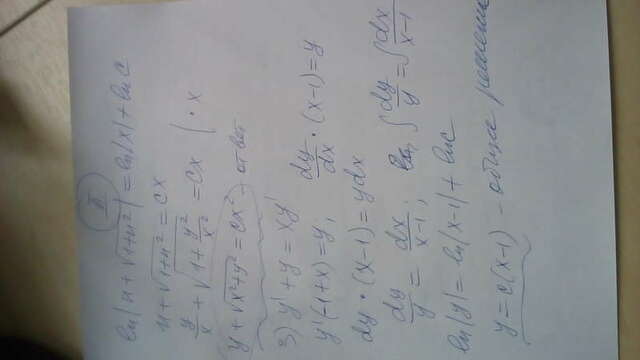 II
ln|u + √(1+u²)| = ln|x| + ln c
u + √(1+u²) = cx
y/x + √(1 + y²/x²) = cx | · x
y + √(x²+y²) = cx² – ответ
3) y' + y = xy'
y'(-1+x) = y; dy/dx · (x-1) = y
dy · (x-1) = y dx
dy/y = dx/(x-1); ∫ dy/y = ∫ dx/(x-1)
ln|y| = ln|x-1| + ln c
y = c(x-1) – общее решение